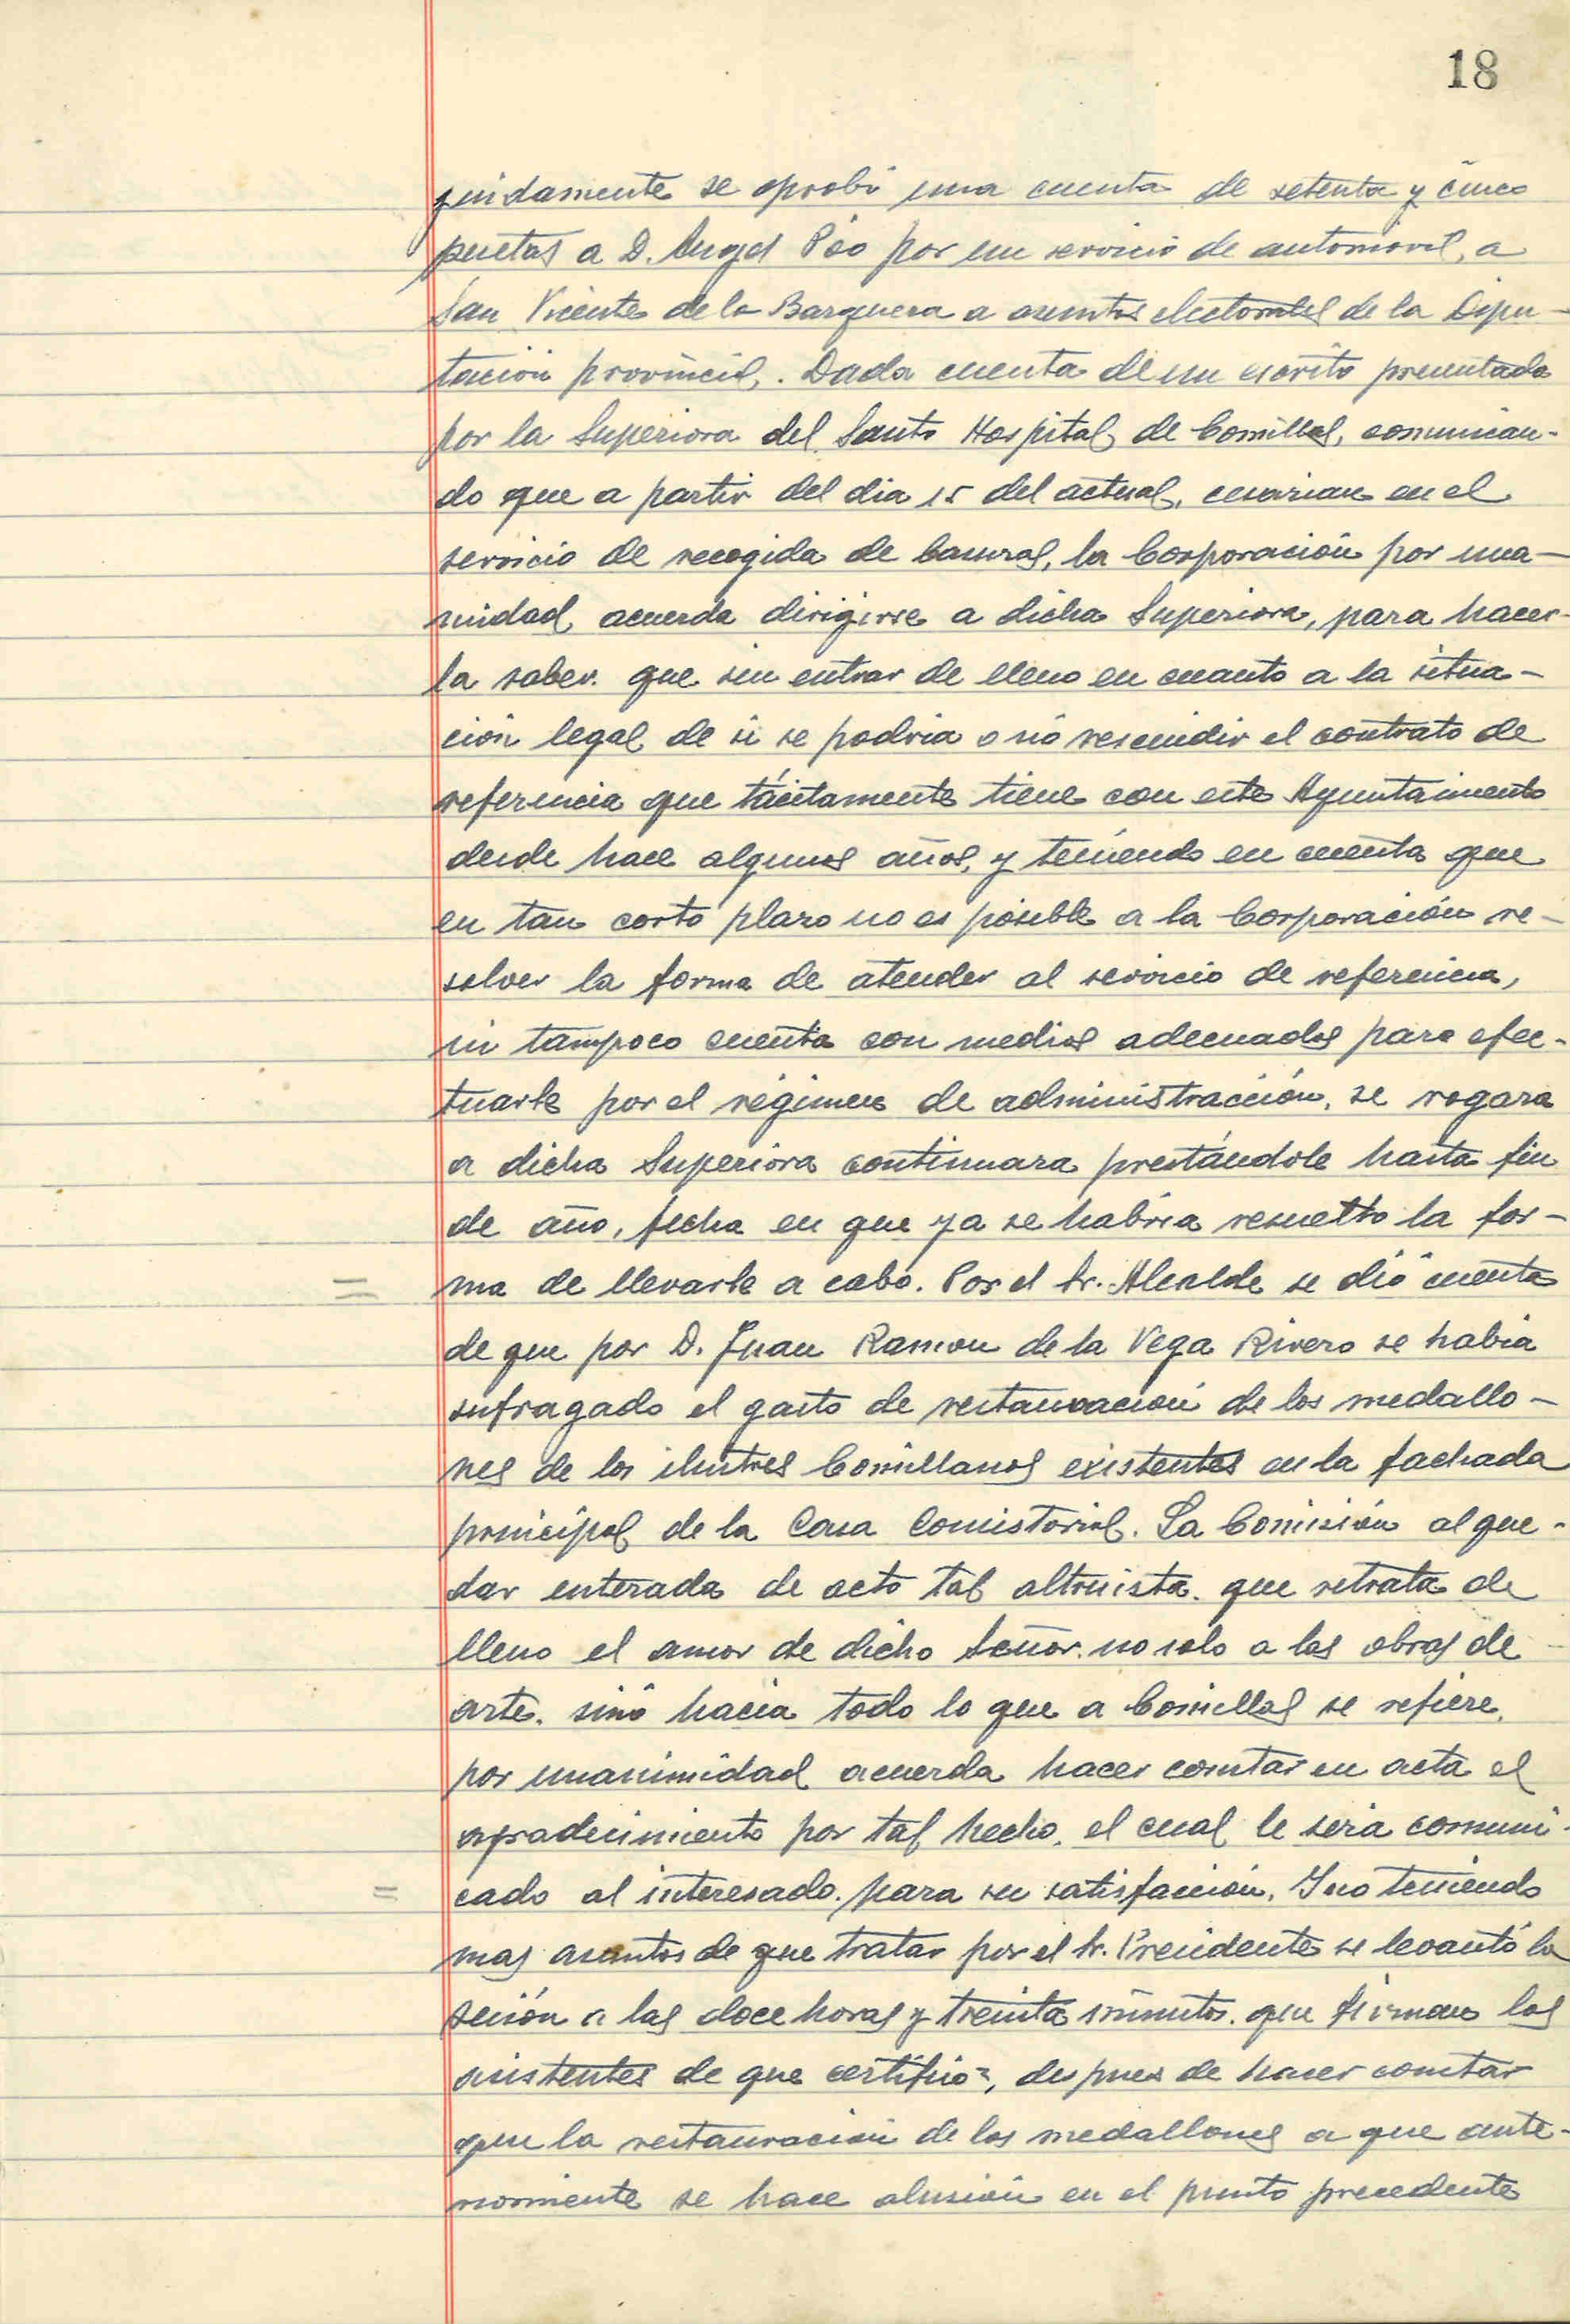 18
guidamente se aprobó una cuenta de setenta y cinco
pesetas a D. Angel Pòo por un servicio de automovil, a
San Vicente de la Barquera a asuntos electorales de la Dipu-
tación provincial,. Dada cuenta de un escrito presentado
por la Superiora del Santo Hospital, de Comillas, comunican-
do que a partir del dia 15 del actual, cesarian en el
servicio de recogida de basuras, la Corporación por una-
nidad, acuerda dirigirse a dicha Superiora, para hacer-
la saber. que sin entrar de lleno en cuanto a la situa-
ción legal de si se podria o nó rescindir el contrato de
referencia que tácitamente tiene con este Ayuntamiento
desde hace algunos años, y teniendo en cuenta que
en tan corto plazo no es posible a la Corporación re-
solver la forma de atender al servicio de referencia,
ni tampoco cuenta con medios adecuados para efec-
tuarle por el régimen de administracción, se rogara
a dicha Superiora continuara prestándole hasta fin
de año, fecha en que ya se habria resuelto la for-
= ma de llevarle a cabo. Por el Sr. Alcalde se dió cuenta
de que por D. Juan Ramon de la Vega Rivero se habia
sufragado el gasto de restauración de los medallo-
nes de los ilustres Comillanos existentes en la fachada
principal de la Casa Consistorial. La Comisión al que-
dar enterada de acto tal altruista. que retrata de
lleno el amor de dicho Señor. no solo a las obras de
arte. sinó hacia todo lo que a Comillas se refiere,
por unanimidad acuerda hacer constar en acta el
agradecimiento por tal hecho, el cual le sera comuni-
= cado al interesado. para su satisfacción. Y no teniendo
mas asuntos de que tratar por el Sr. Presidente se levantó la
sesión a las doce horas y treinta minutos. que firman los
asistentes de que certifico=, despues de hacer constar
que la restauración de los medallones a que ante-
riormente se hace alusión en el punto precedente